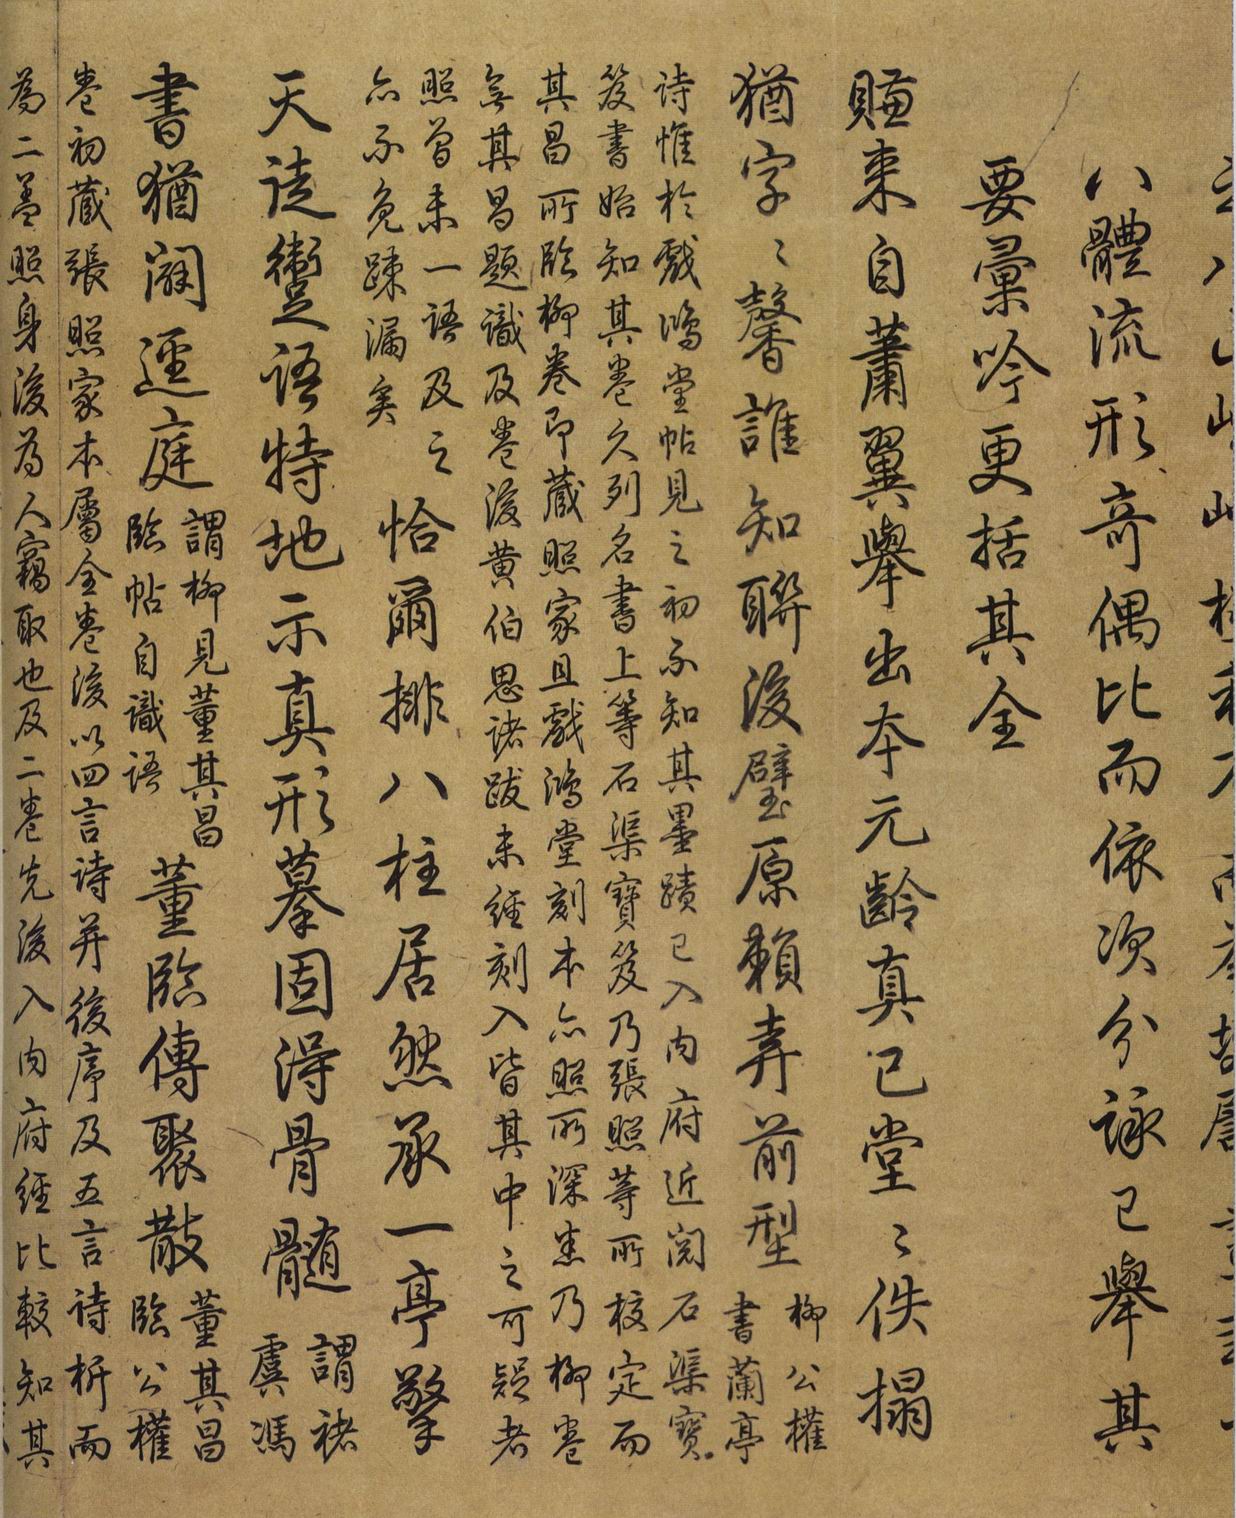 八體流形奇偶比而依次分詠已舉其
要彙吟更括其全
賺来自蕭翼舉出本元齡真已堂〻佚搨
猶字〻馨誰知聯後璧原賴弆前型
柳公權
書蘭亭
詩惟於戲鴻堂帖見之初不知其墨蹟已入内府近閱石渠寶
笈書始知其卷久列名書上等石渠寶笈乃張照等所校定而
其昌所臨柳卷即藏照家且戲鴻堂刻本亦照所深悉乃柳卷
無其昌題識及卷後黄伯思諸跋未經刻入皆其中之可疑者
照曾未一語及之
亦不免疎漏矣
恰爾排八柱居然承一亭擎
天徒衢躗語特地示真形摹固得骨髓
謂褚
虞馮
書猶闊逕庭
謂柳見董其昌
臨帖自識語
董臨傳聚散
董其昌
臨公權
卷初藏張照家本屬全卷後以四言詩并後序及五言詩析而
為二蓋照身後為人竊取也及二卷先後入内府經比較知其